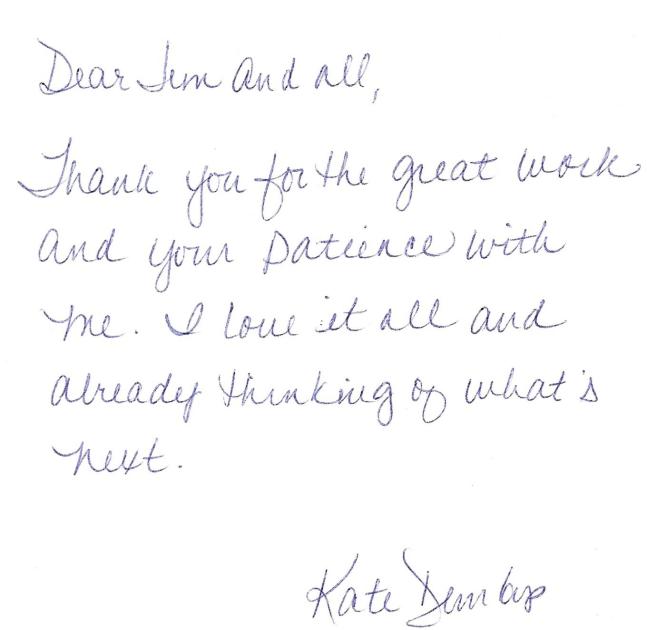 Dear Jim and all,
Thank you for the great work
and your patience with
me. I love it all and
already thinking of what's
next.
Kate